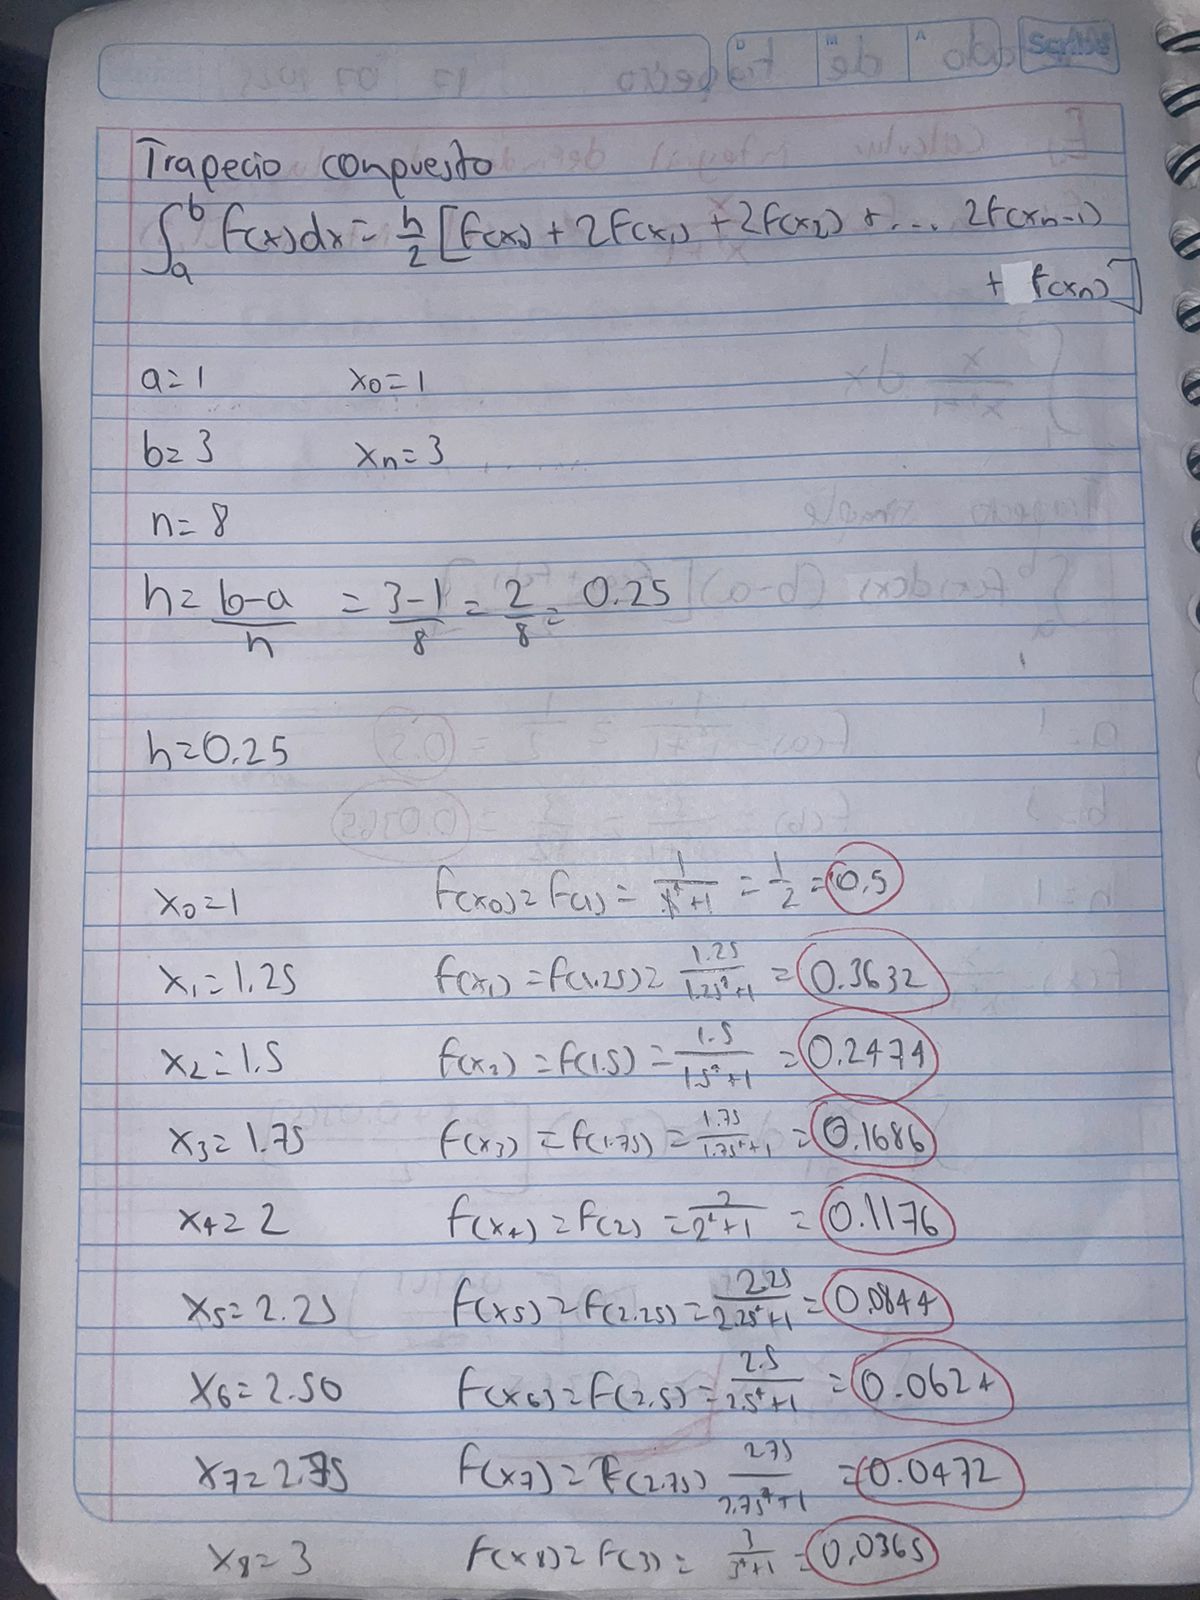 Scribe
D M A
Trapecio compuesto
∫ₐᵇ f(x)dx = h/2 [f(x₀) + 2f(x₁) + 2f(x₂) + ... 2f(xn-1)
+ f(xn)]
a=1 x₀=1
b=3 xn=3
n=8
h= b-a/n = 3-1/8 = 2/8 = 0.25
h=0.25
x₀=1 f(x₀)=f(1)= 1/1⁴+1 = 1/2 = 0.5
x₁=1.25 f(x₁)=f(1.25)= 1.25/1.25⁴+1 = 0.3632
x₂=1.5 f(x₂)=f(1.5)= 1.5/1.5⁴+1 = 0.2474
x₃=1.75 f(x₃)=f(1.75)= 1.75/1.75⁴+1 = 0.1686
x₄=2 f(x₄)=f(2)= 2/2⁴+1 = 0.1176
x₅=2.25 f(x₅)=f(2.25)= 2.25/2.25⁴+1 = 0.0844
x₆=2.50 f(x₆)=f(2.5)= 2.5/2.5⁴+1 = 0.0624
x₇=2.75 f(x₇)=f(2.75) 2.75/2.75⁴+1 = 0.0472
x₈=3 f(x₈)=f(3)= 3/3⁴+1 = 0.0365